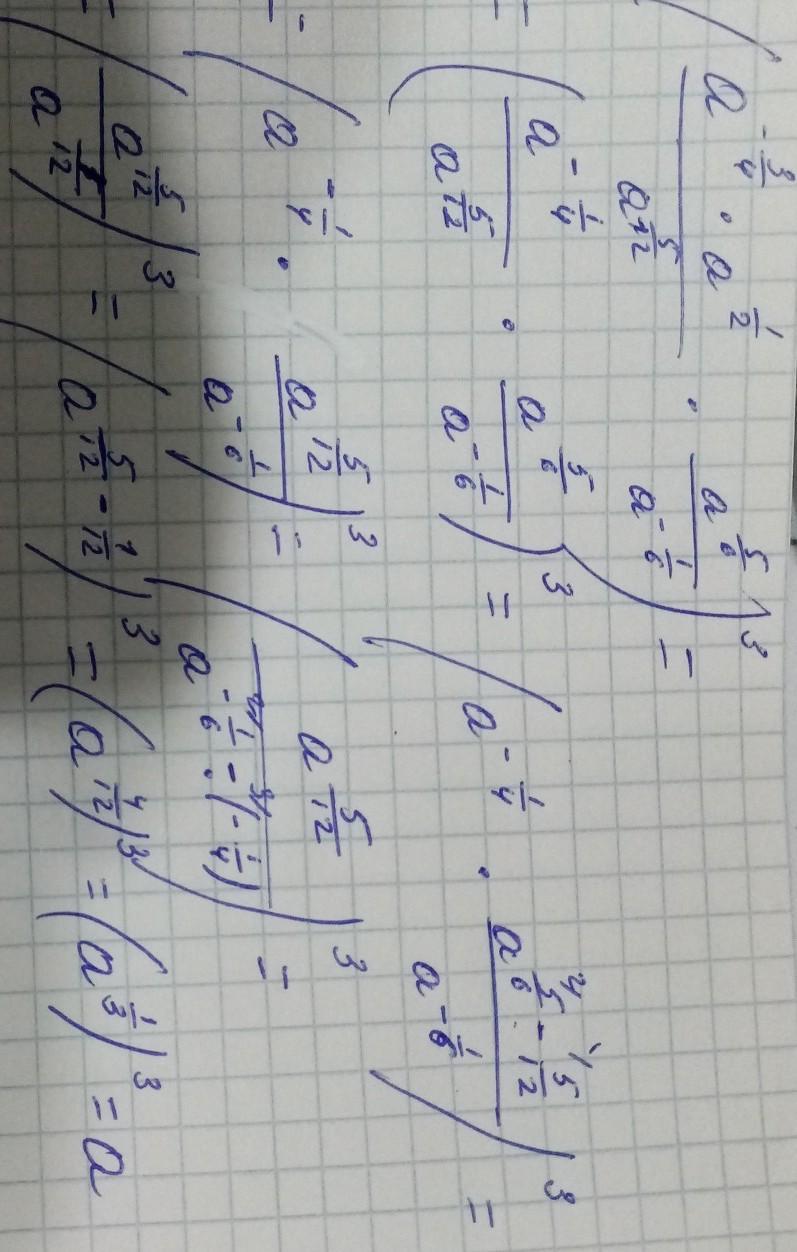 ( (a^{-3/4} · a^{1/2}) / a^{5/12} · a^{5/6} / a^{-1/6} )^3 =
= ( a^{-1/4} / a^{5/12} · a^{5/6} / a^{-1/6} )^3 = ( a^{-1/4} · a^{5/6 - 5/12} / a^{-1/6} )^3 =
= ( a^{-1/4} · a^{5/12} / a^{-1/6} )^3 = ( a^{5/12} / a^{-1/6 - (-1/4)} )^3 =
= ( a^{5/12} / a^{1/12} )^3 = ( a^{5/12 - 1/12} )^3 = ( a^{4/12} )^3 = ( a^{1/3} )^3 = a